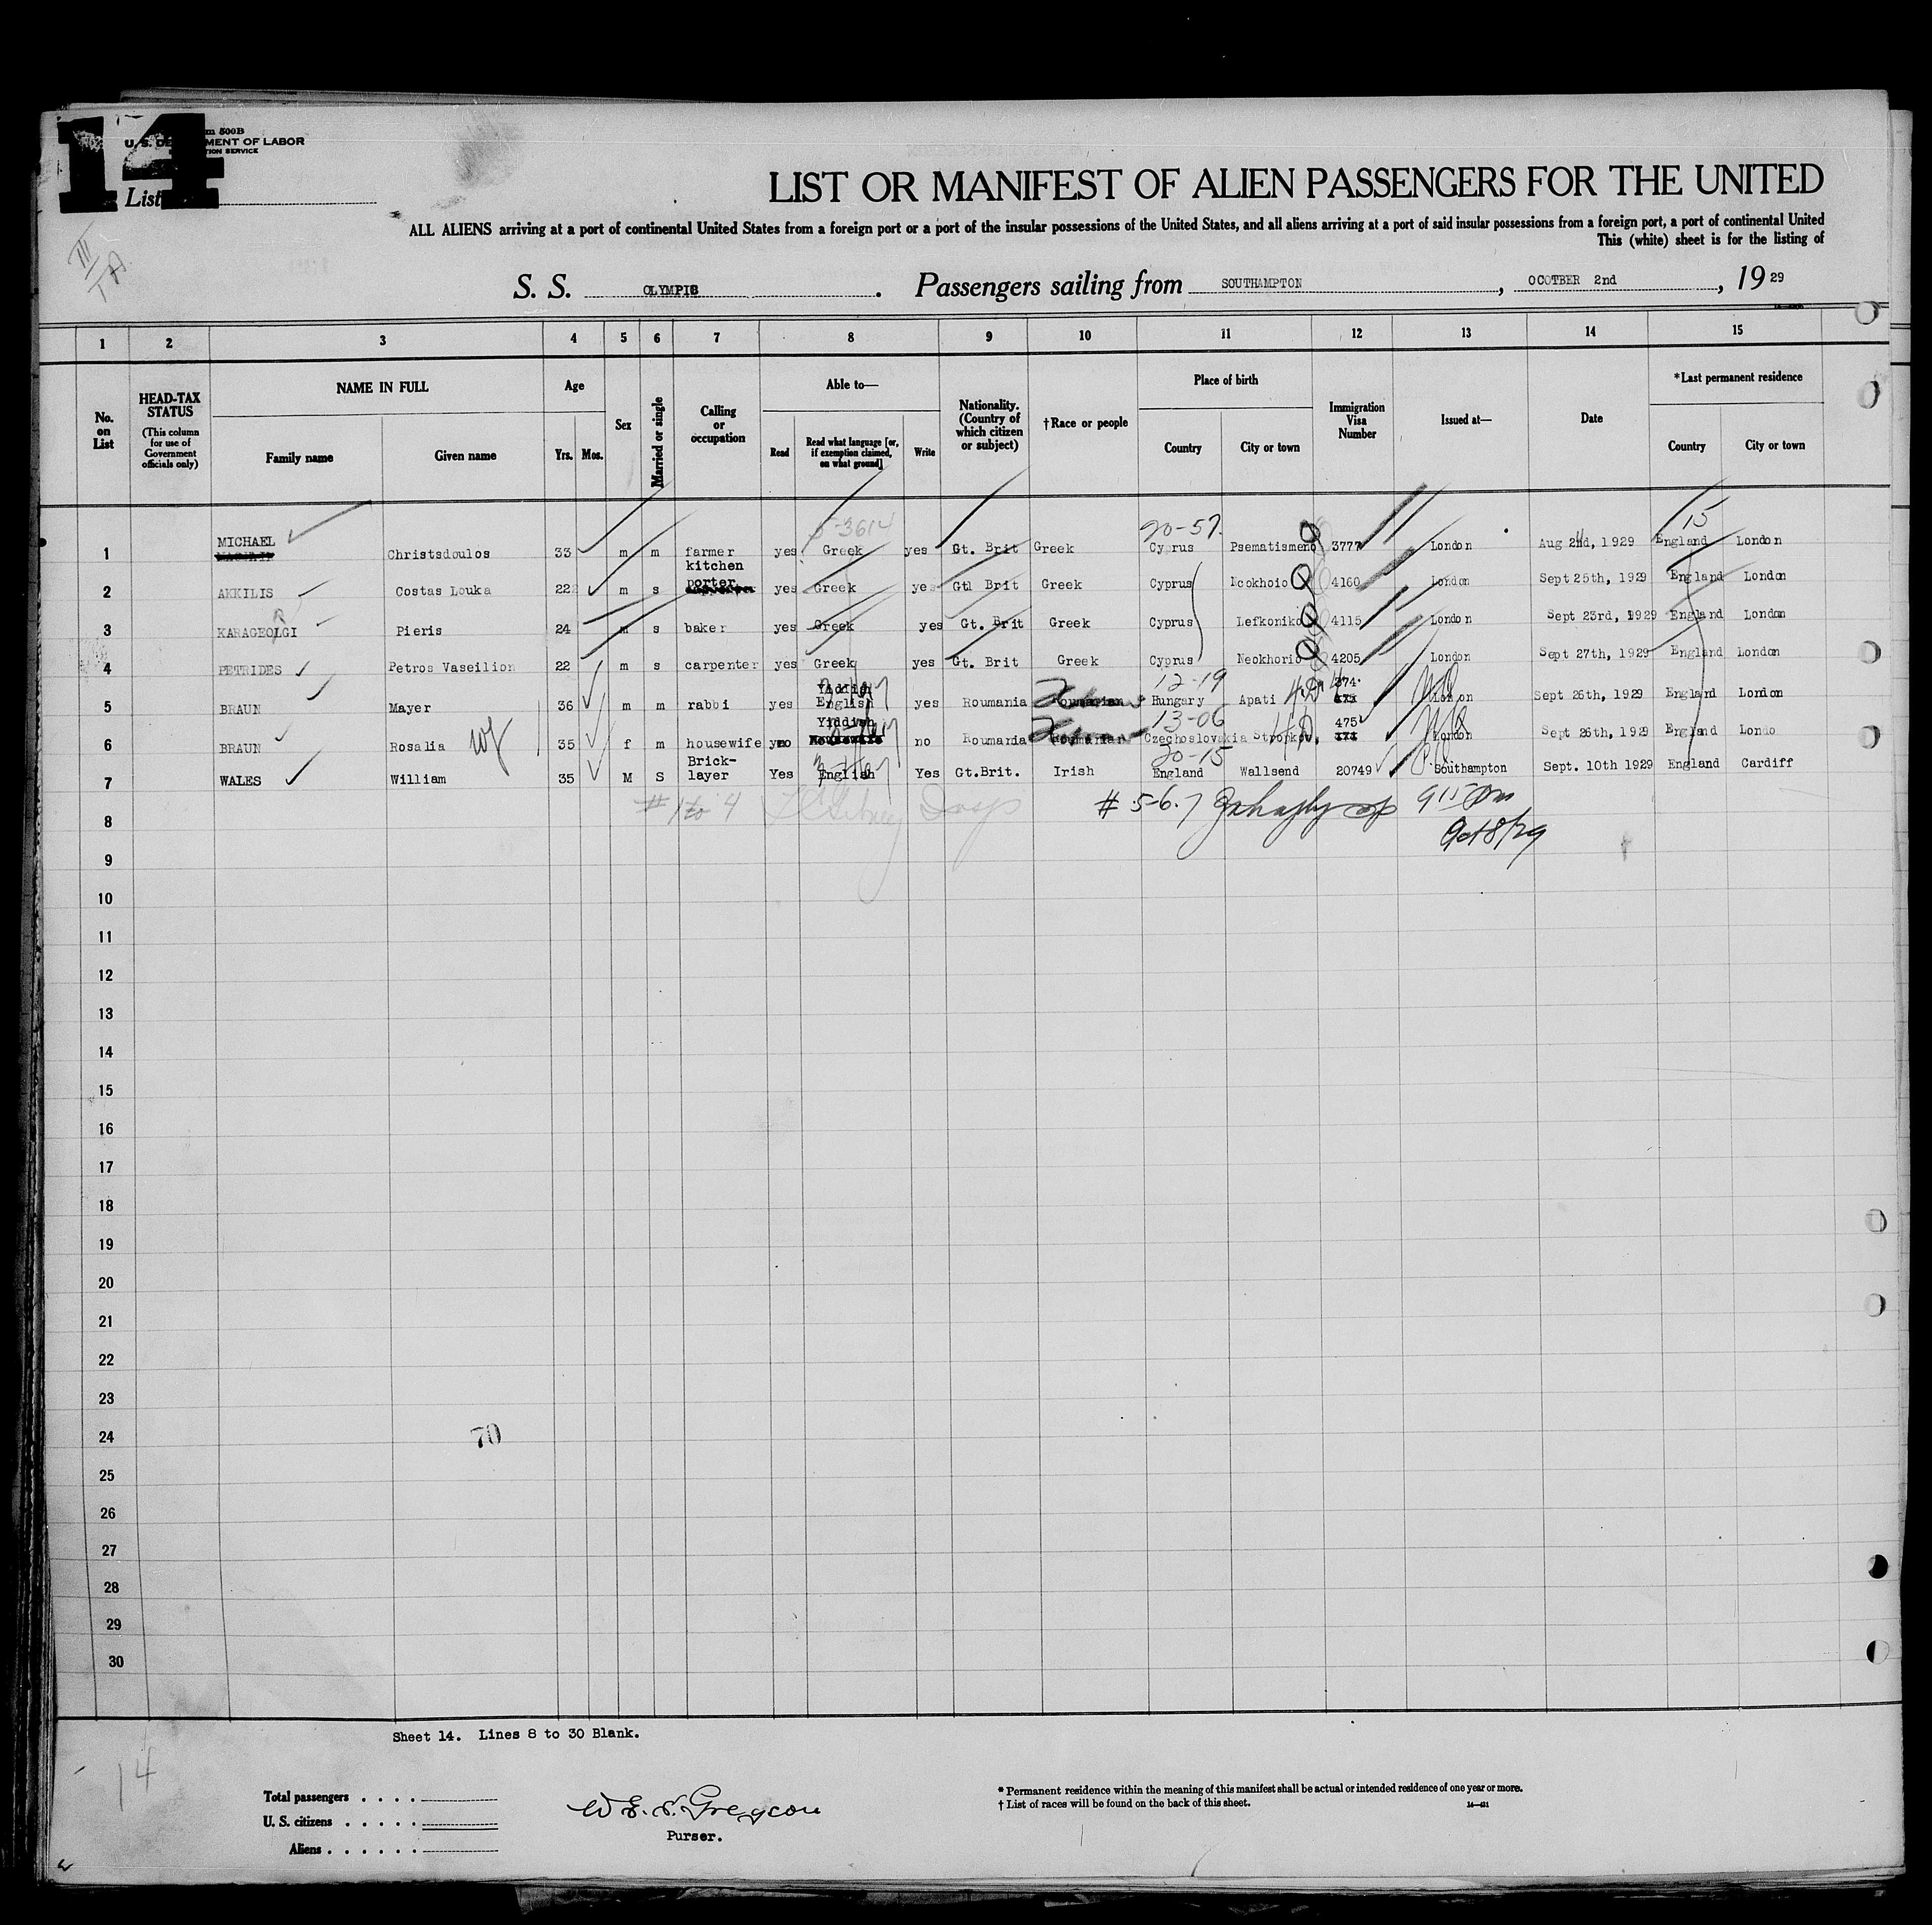 14
m 500B
U. S. DE MENT OF LABOR
TION SERVICE
List
LIST OR MANIFEST OF ALIEN PASSENGERS FOR THE UNITED
ALL ALIENS arriving at a port of continental United States from a foreign port or a port of the insular possessions of the United States, and all aliens arriving at a port of said insular possessions from a foreign port, a port of continental United
This (white) sheet is for the listing of
S. S. OLYMPIC . Passengers sailing from SOUTHAMPTON , OCOTBER 2nd , 19 29
1 2 3 4 5 6 7 8 9 10 11 12 13 14 15
No. on List
HEAD-TAX STATUS
(This column for use of Government officials only)
NAME IN FULL
Family name Given name
Age
Yrs. Mos.
Sex
Married or single
Calling or occupation
Able to—
Read
Read what language [or, if exemption claimed, on what ground]
Write
Nationality. (Country of which citizen or subject)
†Race or people
Place of birth
Country City or town
Immigration Visa Number
Issued at—
Date
*Last permanent residence
Country City or town
5-3614 20-57. 15
1 MICHAEL Christsdoulos 33 m m farmer yes Greek yes Gt. Brit Greek Cyprus Psematismeno 3777 London Aug 2nd, 1929 England London
2 AKKILIS Costas Louka 22 m s kitchen porter yes Greek yes Gtl Brit Greek Cyprus Neokhoio 4160 London Sept 25th, 1929 England London
3 KARAGEOLGI R Pieris 24 m s baker yes Greek yes Gt. Brit Greek Cyprus Lefkoniko 4115 London Sept 23rd, 1929 England London
4 PETRIDES Petros Vaseilion 22 m s carpenter yes Greek yes Gt. Brit Greek Cyprus Neokhorio 4205 London Sept 27th, 1929 England London
12-19
5 BRAUN Mayer 36 m m rabbi yes Yiddish English yes Roumania Hebrew Roumanian Hungary Apati 474 London Sept 26th, 1929 England London
13-06
6 BRAUN Rosalia wf 35 f m housewife no Yiddish Housewife no Roumania Hebrew Roumanian Czechoslovakia Stropkov 475 London Sept 26th, 1929 England Londo
20-15
7 WALES William 35 M S Brick-layer Yes English Yes Gt.Brit. Irish England Wallsend 20749 Southampton Sept. 10th 1929 England Cardiff
# 1 to 4 # 5-6-7 9 15 pm
8 Oct 8/29
9
10
11
12
13
14
15
16
17
18
19
20
21
22
23
24 70
25
26
27
28
29
30
Sheet 14. Lines 8 to 30 Blank.
14
Total passengers . . . .
U. S. citizens . . . . .
Aliens . . . . . .
Purser.
* Permanent residence within the meaning of this manifest shall be actual or intended residence of one year or more.
† List of races will be found on the back of this sheet.